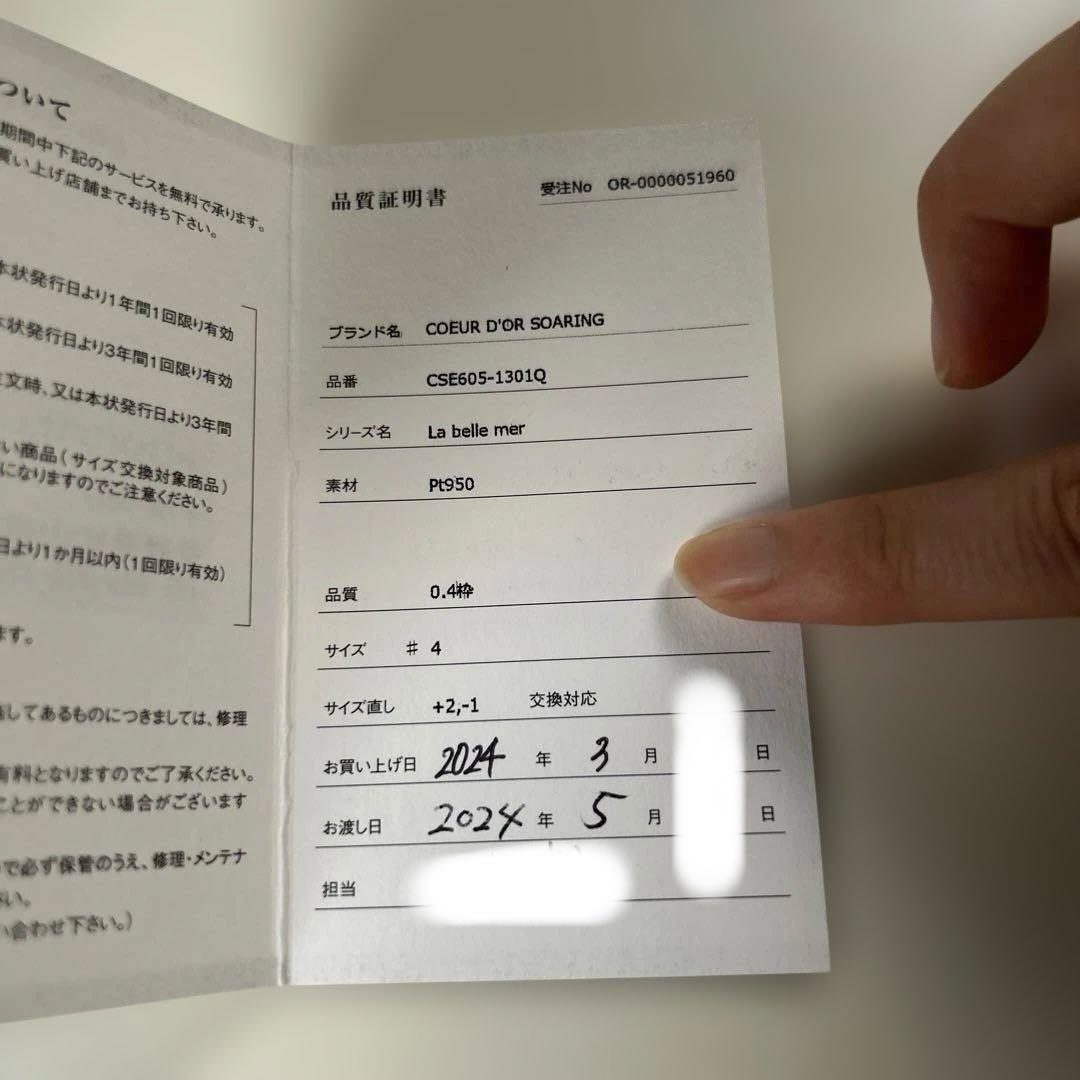 ついて
期間中下記のサービスを無料で承ります。
買い上げ店舗までお持ち下さい。
本状発行日より1年間1回限り有効
本状発行日より3年間1回限り有効
文時、又は本状発行日より3年間
い商品(サイズ交換対象商品)
になりますのでご注意ください。
日より1か月以内(1回限り有効)
ます。
してあるものにつきましては、修理
有料となりますのでご了承ください。
ことができない場合がございます
で必ず保管のうえ、修理・メンテナ
さい。
い合わせ下さい。)
品質証明書
受注No OR-0000051960
ブランド名 COEUR D'OR SOARING
品番 CSE605-1301Q
シリーズ名 La belle mer
素材 Pt950
品質 0.4枠
サイズ # 4
サイズ直し +2,-1 交換対応
お買い上げ日 2024 年 3 月 日
お渡し日 2024 年 5 月 日
担当